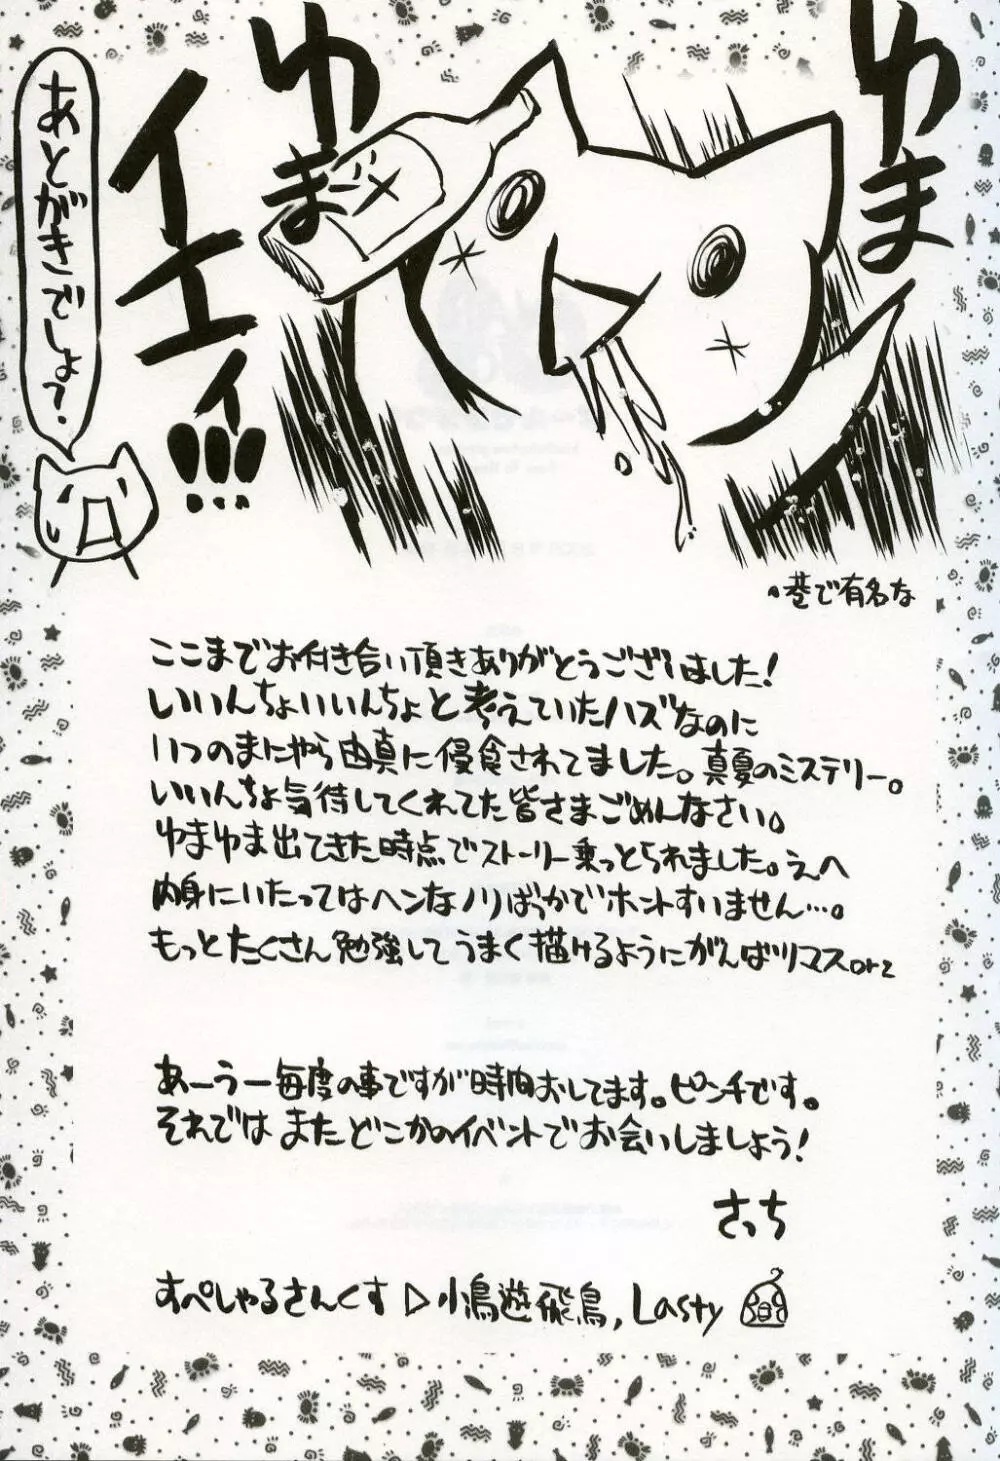 ゆま
ゆま
イエィ!!!
あとがきでしょ？
巷で有名な
ここまでお付き合い頂きありがとうございました!
いいんちょいいんちょと考えていたハズなのに
いつのまにやら由真に侵食されてました。真夏のミステリー。
いいんちょ気待してくれてた皆さまごめんなさい。
ゆまゆま出てきた時点でストーリー乗っとられました。えへ
内身にいたってはヘンなノリばっかでホントすいません…。
もっとたくさん勉強してうまく描けるようにがんばツリマスorz
あーうー毎度の事ですが時間おしてます。ピンチです。
それではまたどこかのイベントでお会いしましょう!
さっち
すぺしゃるさんくす▷小鳥遊飛鳥, Lasty